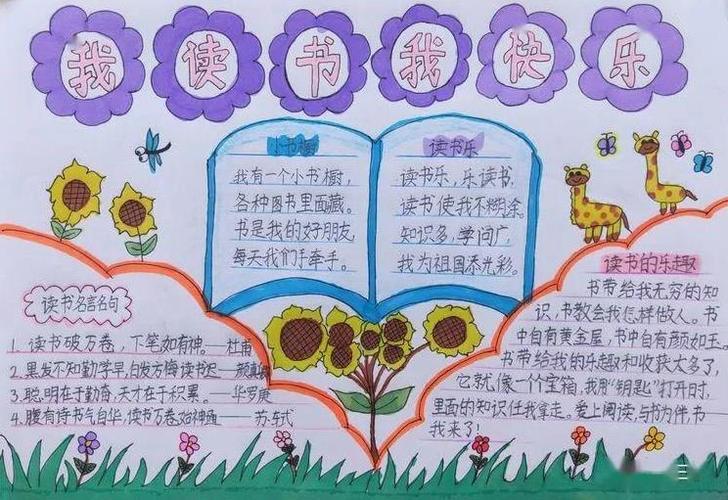 我读书我快乐
小书橱
我有一个小书橱,
各种图书里面藏。
书是我的好朋友
每天我们手牵手。
读书乐
读书乐,乐读书,
读书使我不糊涂。
知识多,学问广,
我为祖国添光彩。
读书名言名句
1. 读书破万卷,下笔如有神。——杜甫
2. 黑发不知勤学早,白发方悔读书迟——颜真卿
3. 聪明在于勤奋,天才在于积累。——华罗庚
4. 腹有诗书气自华,读书万卷始通神——苏轼
读书的乐趣
书带给我无穷的知
识,书教会我怎样做人。书
中自有黄金屋,书中自有颜如玉。
书带给我的乐趣和收获太多了,
它就像一个宝箱,我用“钥匙”打开时,
里面的知识任我拿走。爱上阅读,与书为伴,书
我来了!